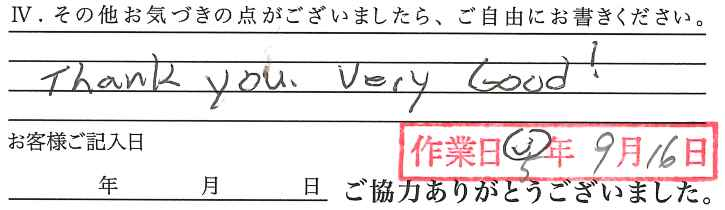 Ⅳ．その他お気づきの点がございましたら、ご自由にお書きください。
Thank you. Very Good!
お客様ご記入日
作業日 5年 9月16日
年 月 日 ご協力ありがとうございました。